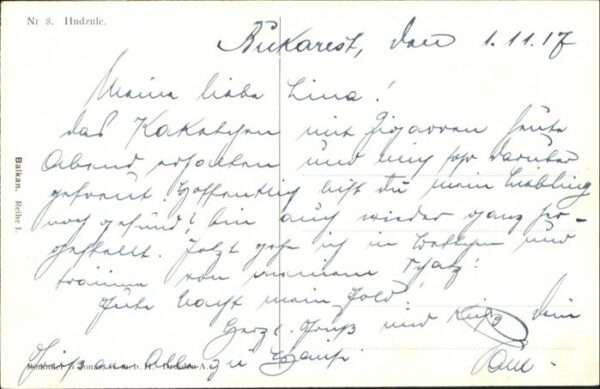 Nr 8. Huzule.
Bukarest, den 1.11.17
Meine liebe Lina!
das Paketchen mit Zigarren heute
Abend erhalten und mich sehr darüber
gefreut. Hoffentlich bist du mein Liebling
noch gesund, bin auch wieder ganz her-
gestellt. Jetzt gehe ich in Bettchen und
träume von meinem Schatz!
Gute Nacht mein Gold!
Herzl. Gruß und Kuß Dein
Grüße an Alle zu Haus.
Balkan. Reihe I.